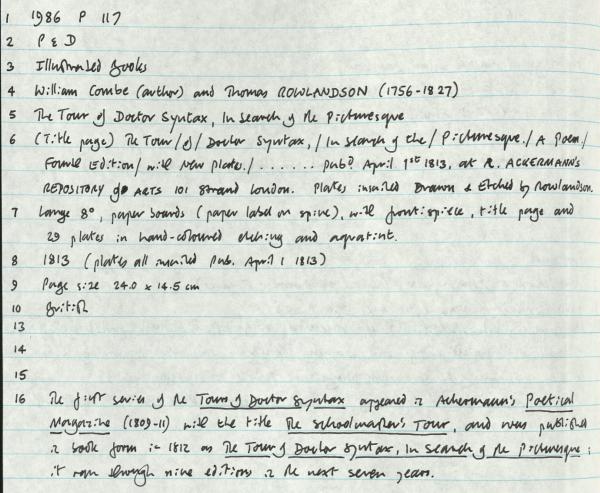 1 1986 P 117
2 P & D
3 Illustrated Books
4 William Combe (author) and Thomas ROWLANDSON (1756-1827)
5 The Tour of Doctor Syntax, In Search of the Picturesque
6 (Title page) The Tour / of / Doctor Syntax, / In Search of the / Picturesque. / A Poem /
Fourth Edition / with New Plates. / ...... Pubd. April 1st 1813, at R. ACKERMANN'S
REPOSITORY of ARTS 101 Strand London. Plates inscribed Drawn & Etched by Rowlandson.
7 Large 8o, paper boards (paper label on spine), with frontispiece, title page and
29 plates in hand-coloured etching and aquatint.
8 1813 (plates all inscribed Pub. April 1 1813)
9 Page size 24.0 x 14.5 cm
10 British
13
14
15
16 The first series of the Tour of Doctor Syntax appeared in Ackermann's Poetical
Magazine (1809-11) with the title The Schoolmaster's Tour, and was published
in book form in 1812 as The Tour of Doctor Syntax, In Search of the Picturesque;
it ran through nine editions in the next seven years.